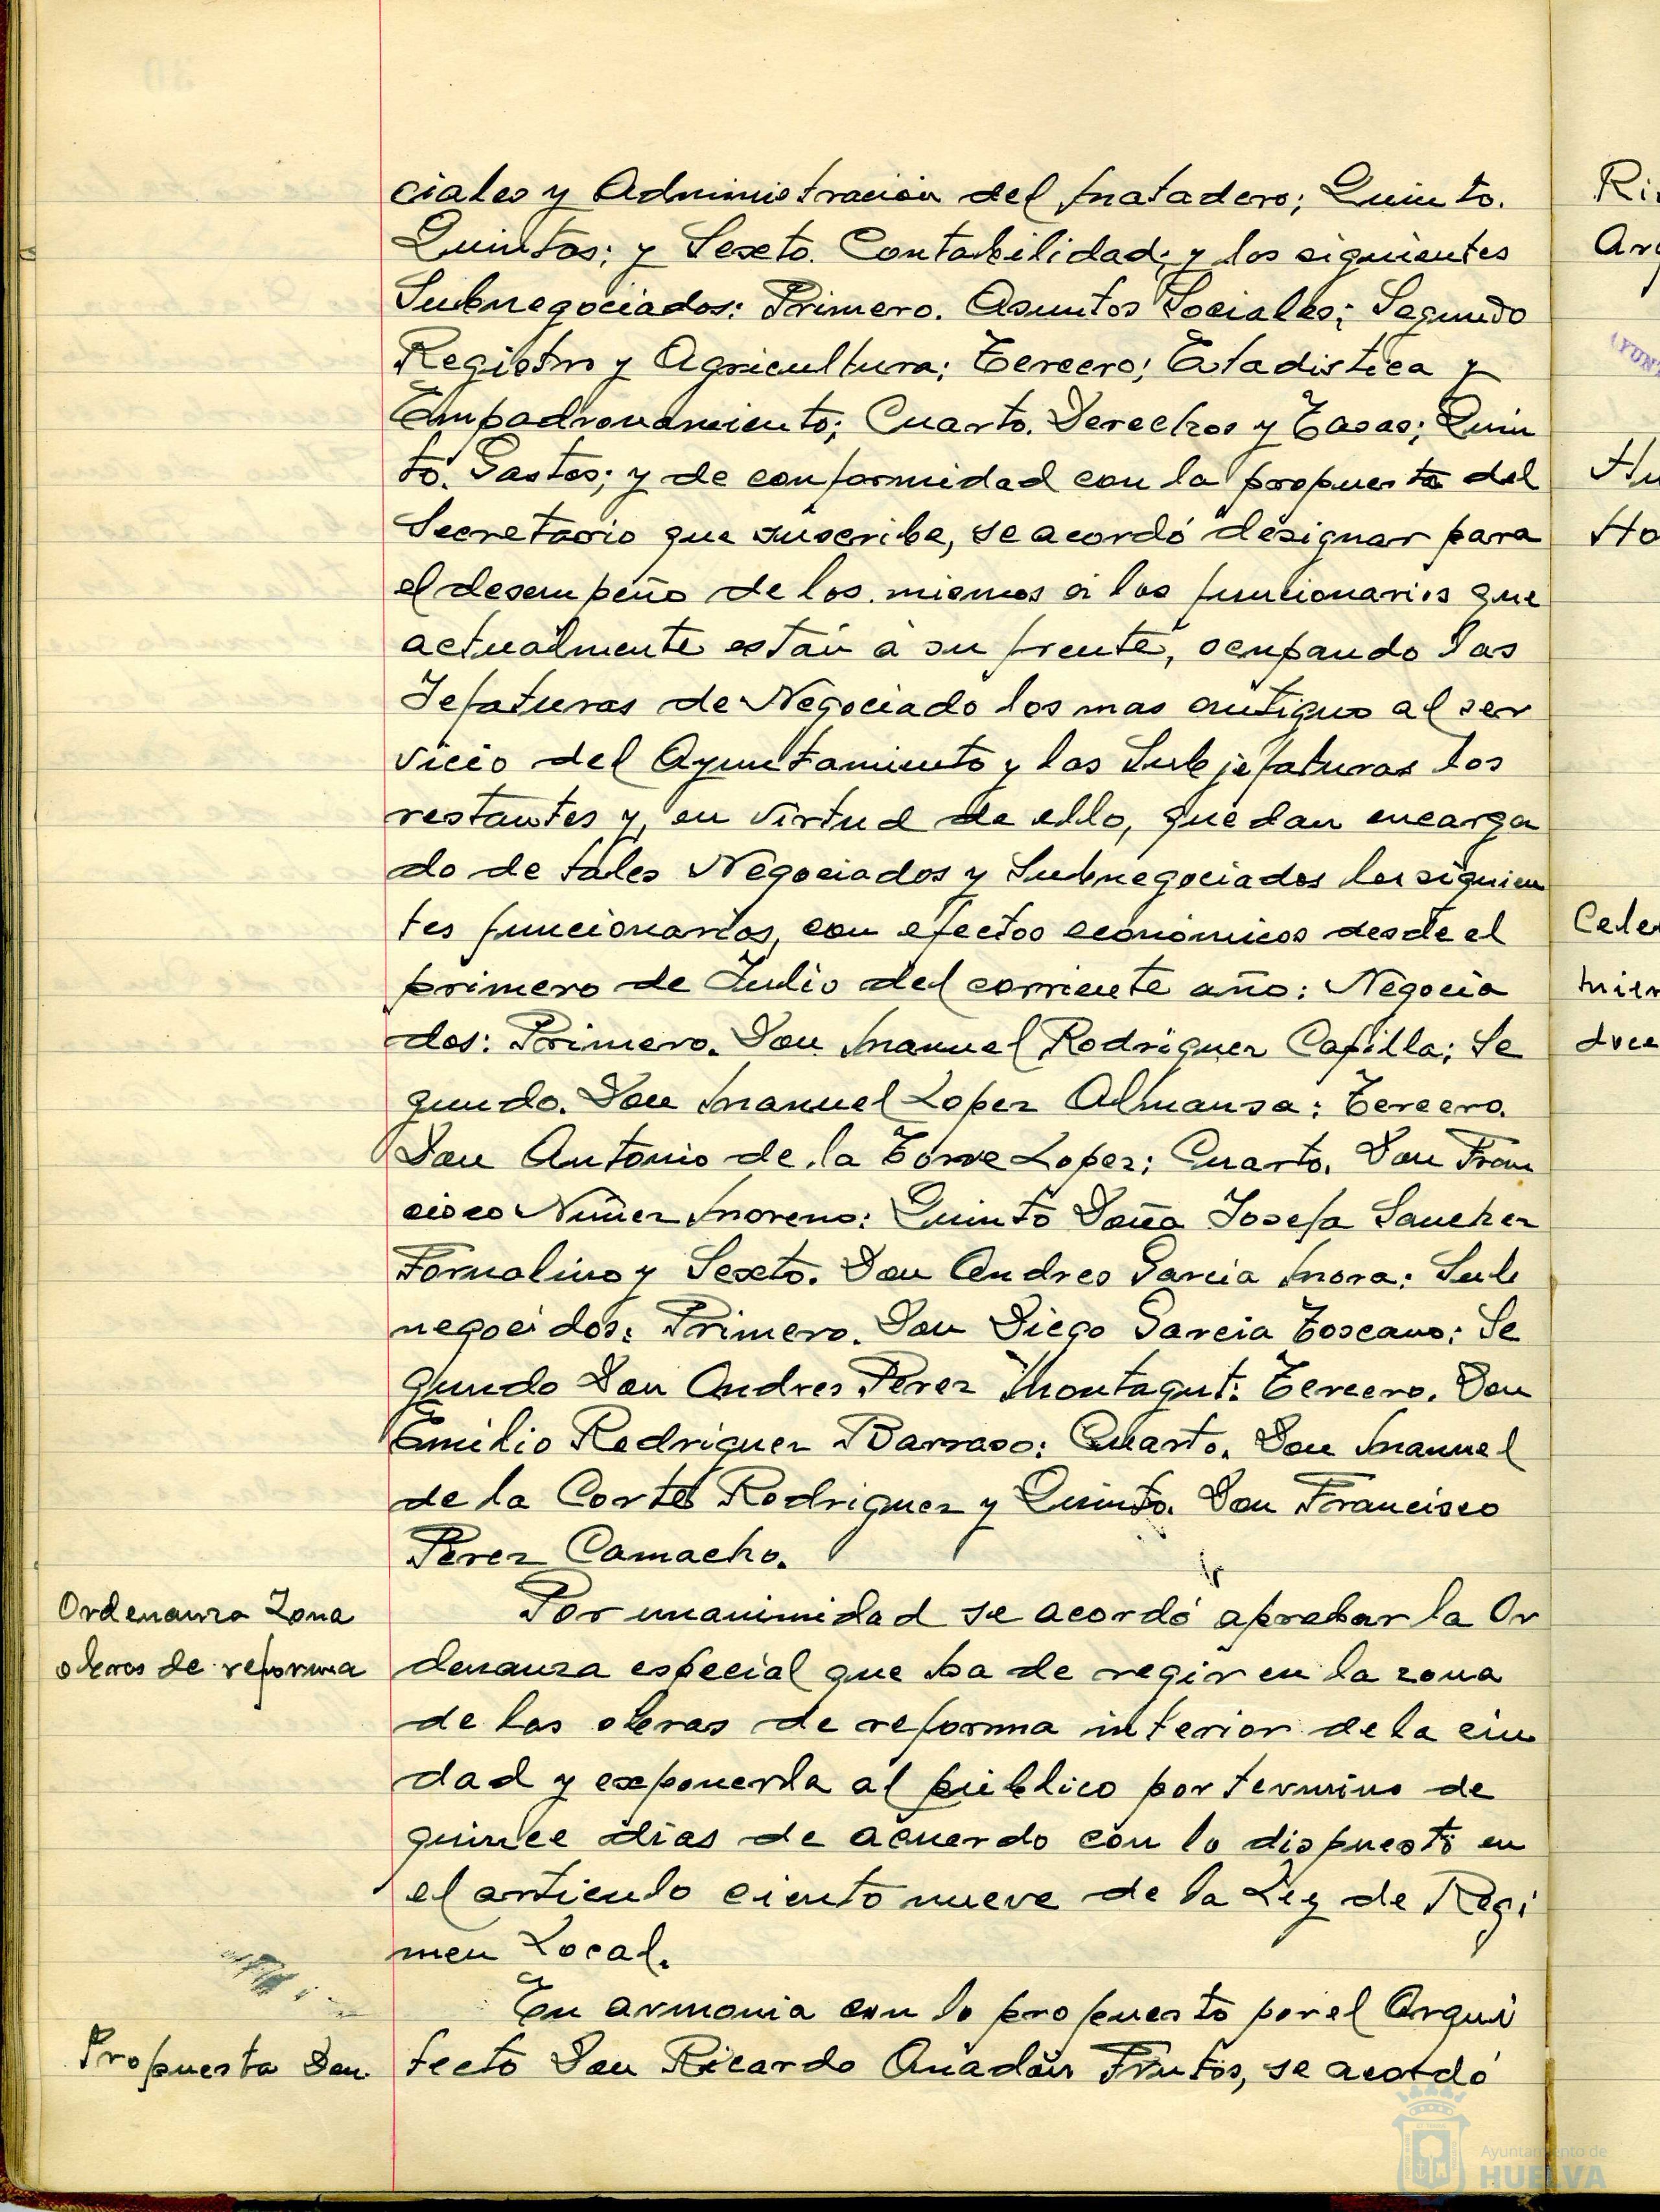 ciales y Administración del Matadero; Quinto.
Quintas; y Sexto. Contabilidad; y los siguientes
Subnegociados: Primero. Asuntos Sociales; Segundo
Registro y Agricultura; Tercero; Estadistica y
Empadronamiento; Cuarto. Derechos y Tasas; Quin
to. Gastos; y de conformidad con la propuesta del
Secretario que suscribe, se acordó designar para
el desempeño de los mismos a los funcionarios que
actualmente están a su frente, ocupando las
Jefaturas de Negociado los mas antiguos al ser
vicio del Ayuntamiento y las Subjefaturas los
restantes y, en virtud de ello, quedan encarga
do de tales Negociados y Subnegociados los siguien
tes funcionarios, con efectos económicos desde el
primero de Julio del corriente año: Negocia
dos: Primero. Don Manuel Rodriguez Capilla; Se
gundo. Don Manuel Lopez Almansa; Tercero.
Don Antonio de la Torre Lopez; Cuarto. Don Fran
cisco Nuñez Moreno; Quinto Doña Josefa Sanchez
Fornalino y Sexto. Don Andres Garcia Mora; Sub
negocidos: Primero. Don Diego Garcia Toscano; Se
gundo Don Andres Perez Montagut; Tercero. Don
Emilio Rodriguez Barraso; Cuarto. Don Manuel
de la Corte Rodriguez y Quinto. Don Francisco
Perez Camacho.
Ordenanza Zona
obras de reforma
Por unanimidad se acordó aprobar la Or
denanza especial que ha de regir en la zona
de las obras de reforma interior de la ciu
dad y exponerla al público por termino de
quince días de acuerdo con lo dispuesto en
el articulo ciento nueve de la Ley de Regi
men Local.
Propuesta Don
En armonia con lo propuesto por el Arqui
tecto Don Ricardo Anadón Frutos, se acordó
Ri
Arq
AYUNT
Hu
Ho
Cele
mien
doce
Ayuntamiento de
HUELVA